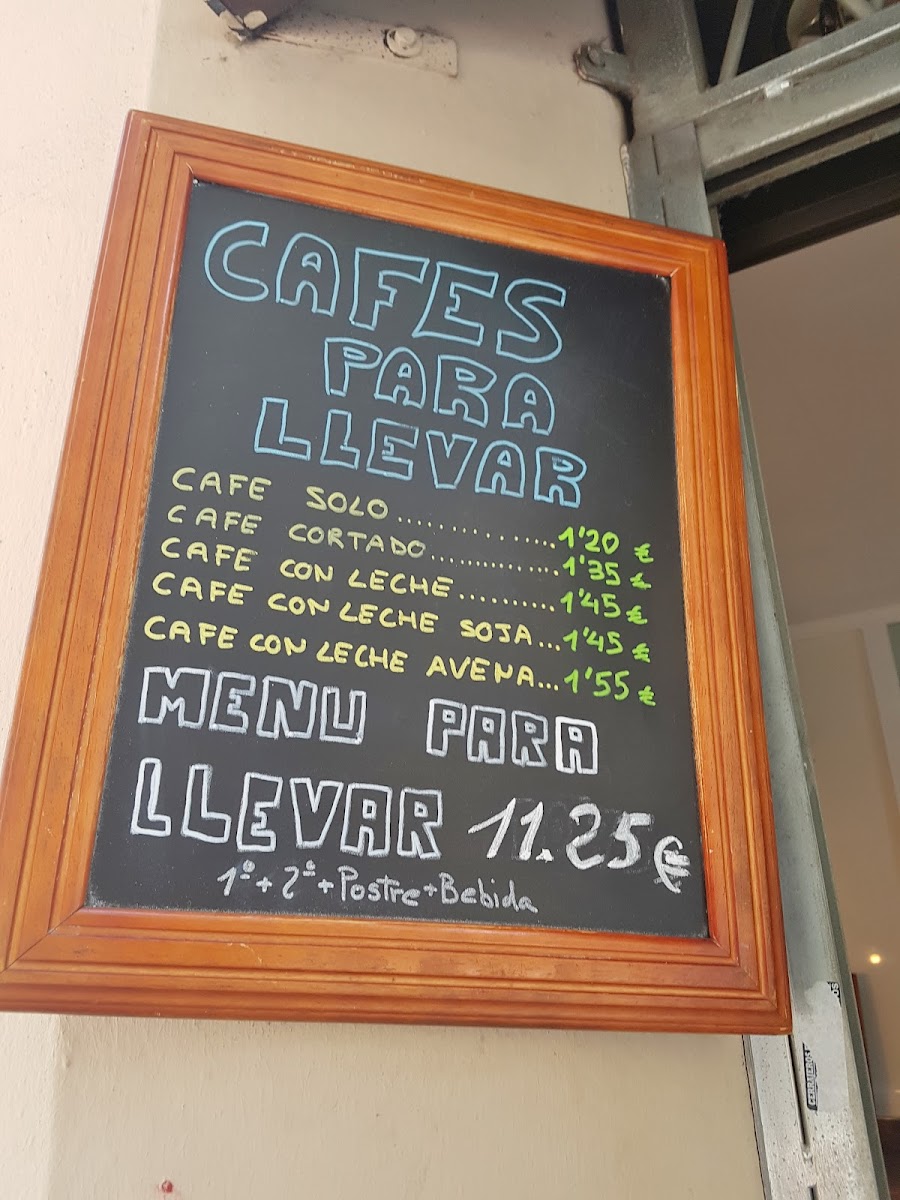 CAFES
PARA
LLEVAR
CAFE SOLO............... 1'20 €
CAFE CORTADO............... 1'35 €
CAFE CON LECHE.......... 1'45 €
CAFE CON LECHE SOJA... 1'45 €
CAFE CON LECHE AVENA... 1'55 €
MENU PARA
LLEVAR 11.25€
1º + 2º + Postre + Bebida